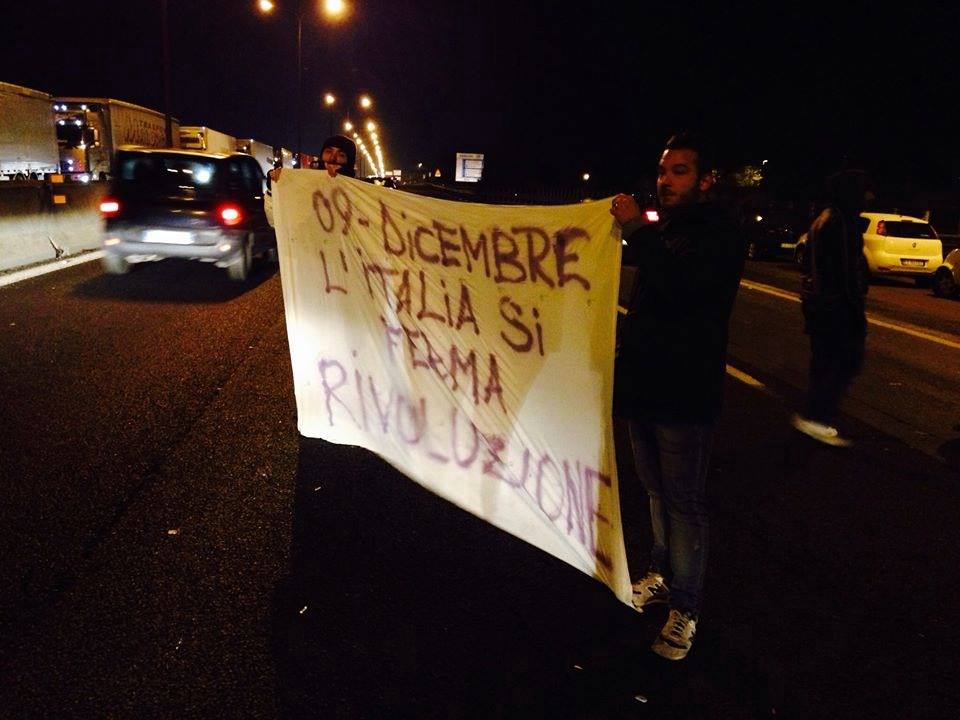 09-DiCEMBRE
L'ITALiA Si
FERMA
RiVOLUZIONE